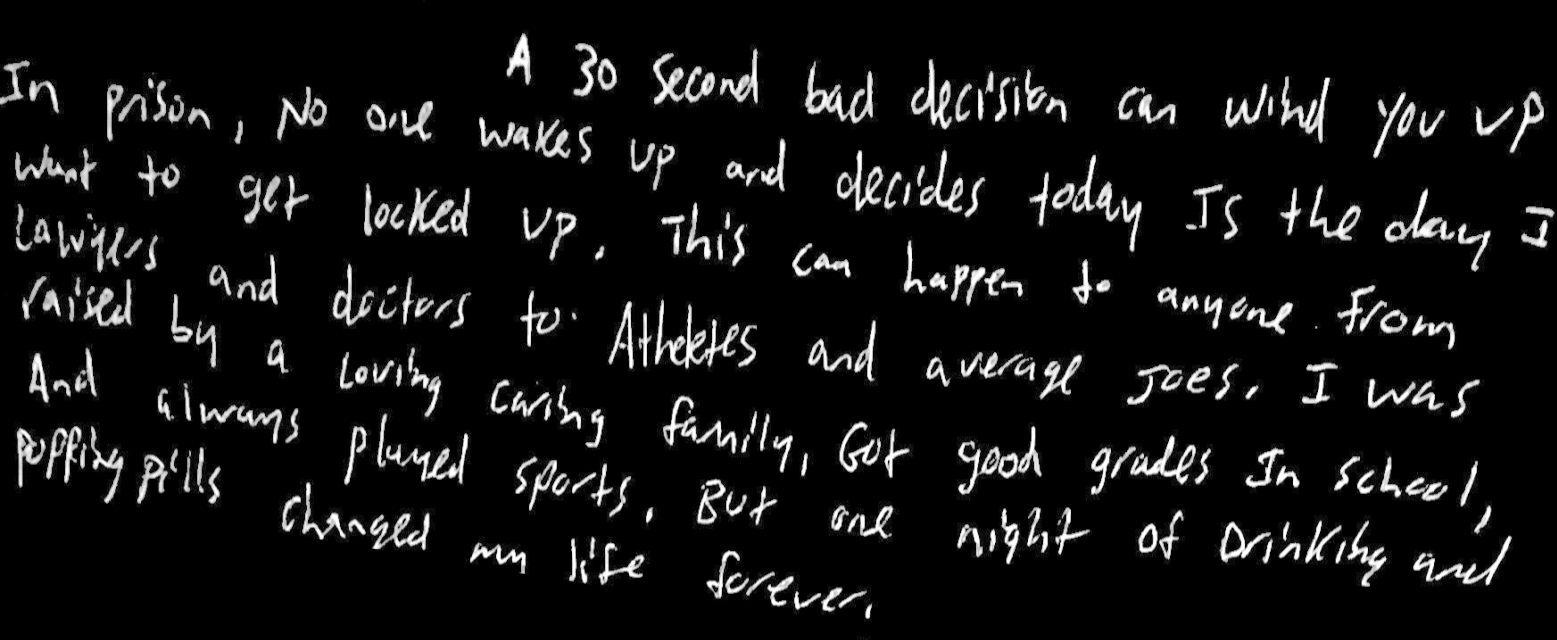 A 30 second bad decision can wind you up
In prison, No one wakes up and decides today Is the day I
want to get locked up. This can happen to anyone from
Lawyers and doctors to Atheletes and average Joes. I was
raised by a Loving caring family, Got good grades In school,
And always played sports. But one night of Drinking and
popping pills changed my life forever.